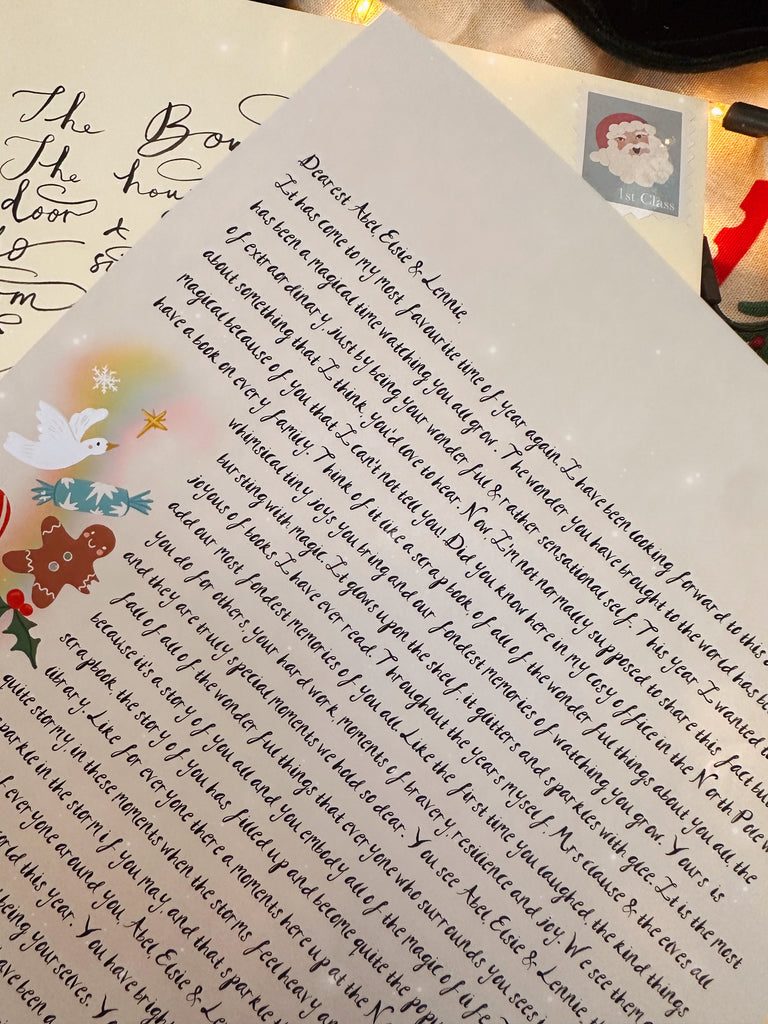 The Bou
The hou
door &
to si
om
1st Class
Dearest Abel, Elsie & Lennie,
It has come to my most favourite time of year again. I have been looking forward to this
has been a magical time watching you all grow. The wonder you have brought to the world has be
of extraordinary, just by being your wonderful & rather sensational self. This year I wanted t
about something that I think you'd love to hear. Now I'm not normally supposed to share this fact but
magical because of you that I can't not tell you! Did you know here in my cosy office in the North Pole w
have a book on every family. Think of it like a scrapbook, of all of the wonderful things about you all the
whimsical tiny joys you bring and our fondest memories of watching you grow. Yours is
bursting with magic. It glows upon the shelf, it glitters and sparkles with glee. It is the most
joyous of books I have ever read. Throughout the years myself, Mrs Clause & the elves all
add our most fondest memories of you all. Like the first time you laughed, the kind things
you do for others, your hard work, moments of bravery, resilience and joy. We see them
and they are truly special moments we hold so dear. You see Abel, Elsie & Lennie, th
fall of all of the wonderful things that everyone who surrounds you sees
because it's a story of you all and you embody all of the magic of life
scrapbook, the story of you has filled up and become quite the popu
library. Like for everyone there a moments here up at the No
quite stormy, in these moments when the storms feel heavy an
parkle in the storm if you may, and that sparkle
f everyone around you. Abel, Elsie & Len
orld this year. You have brigh
being yourselves. Y
ave been a